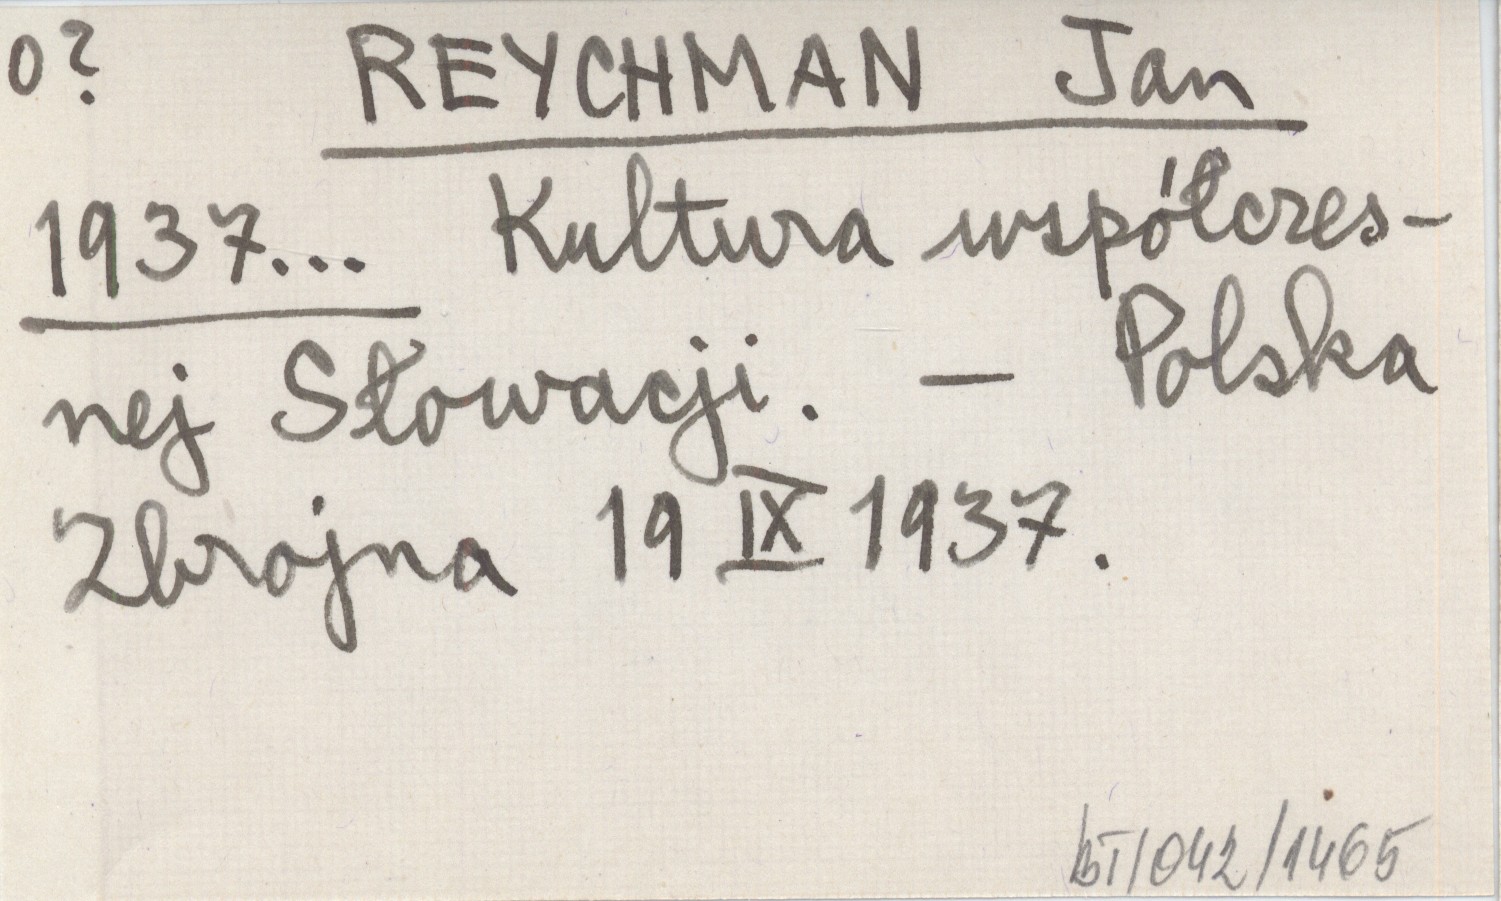 o? REYCHMAN Jan
1937... Kultura współczes-
nej Słowacji. — Polska
Zbrojna 19 IX 1937.
bT/042/1465